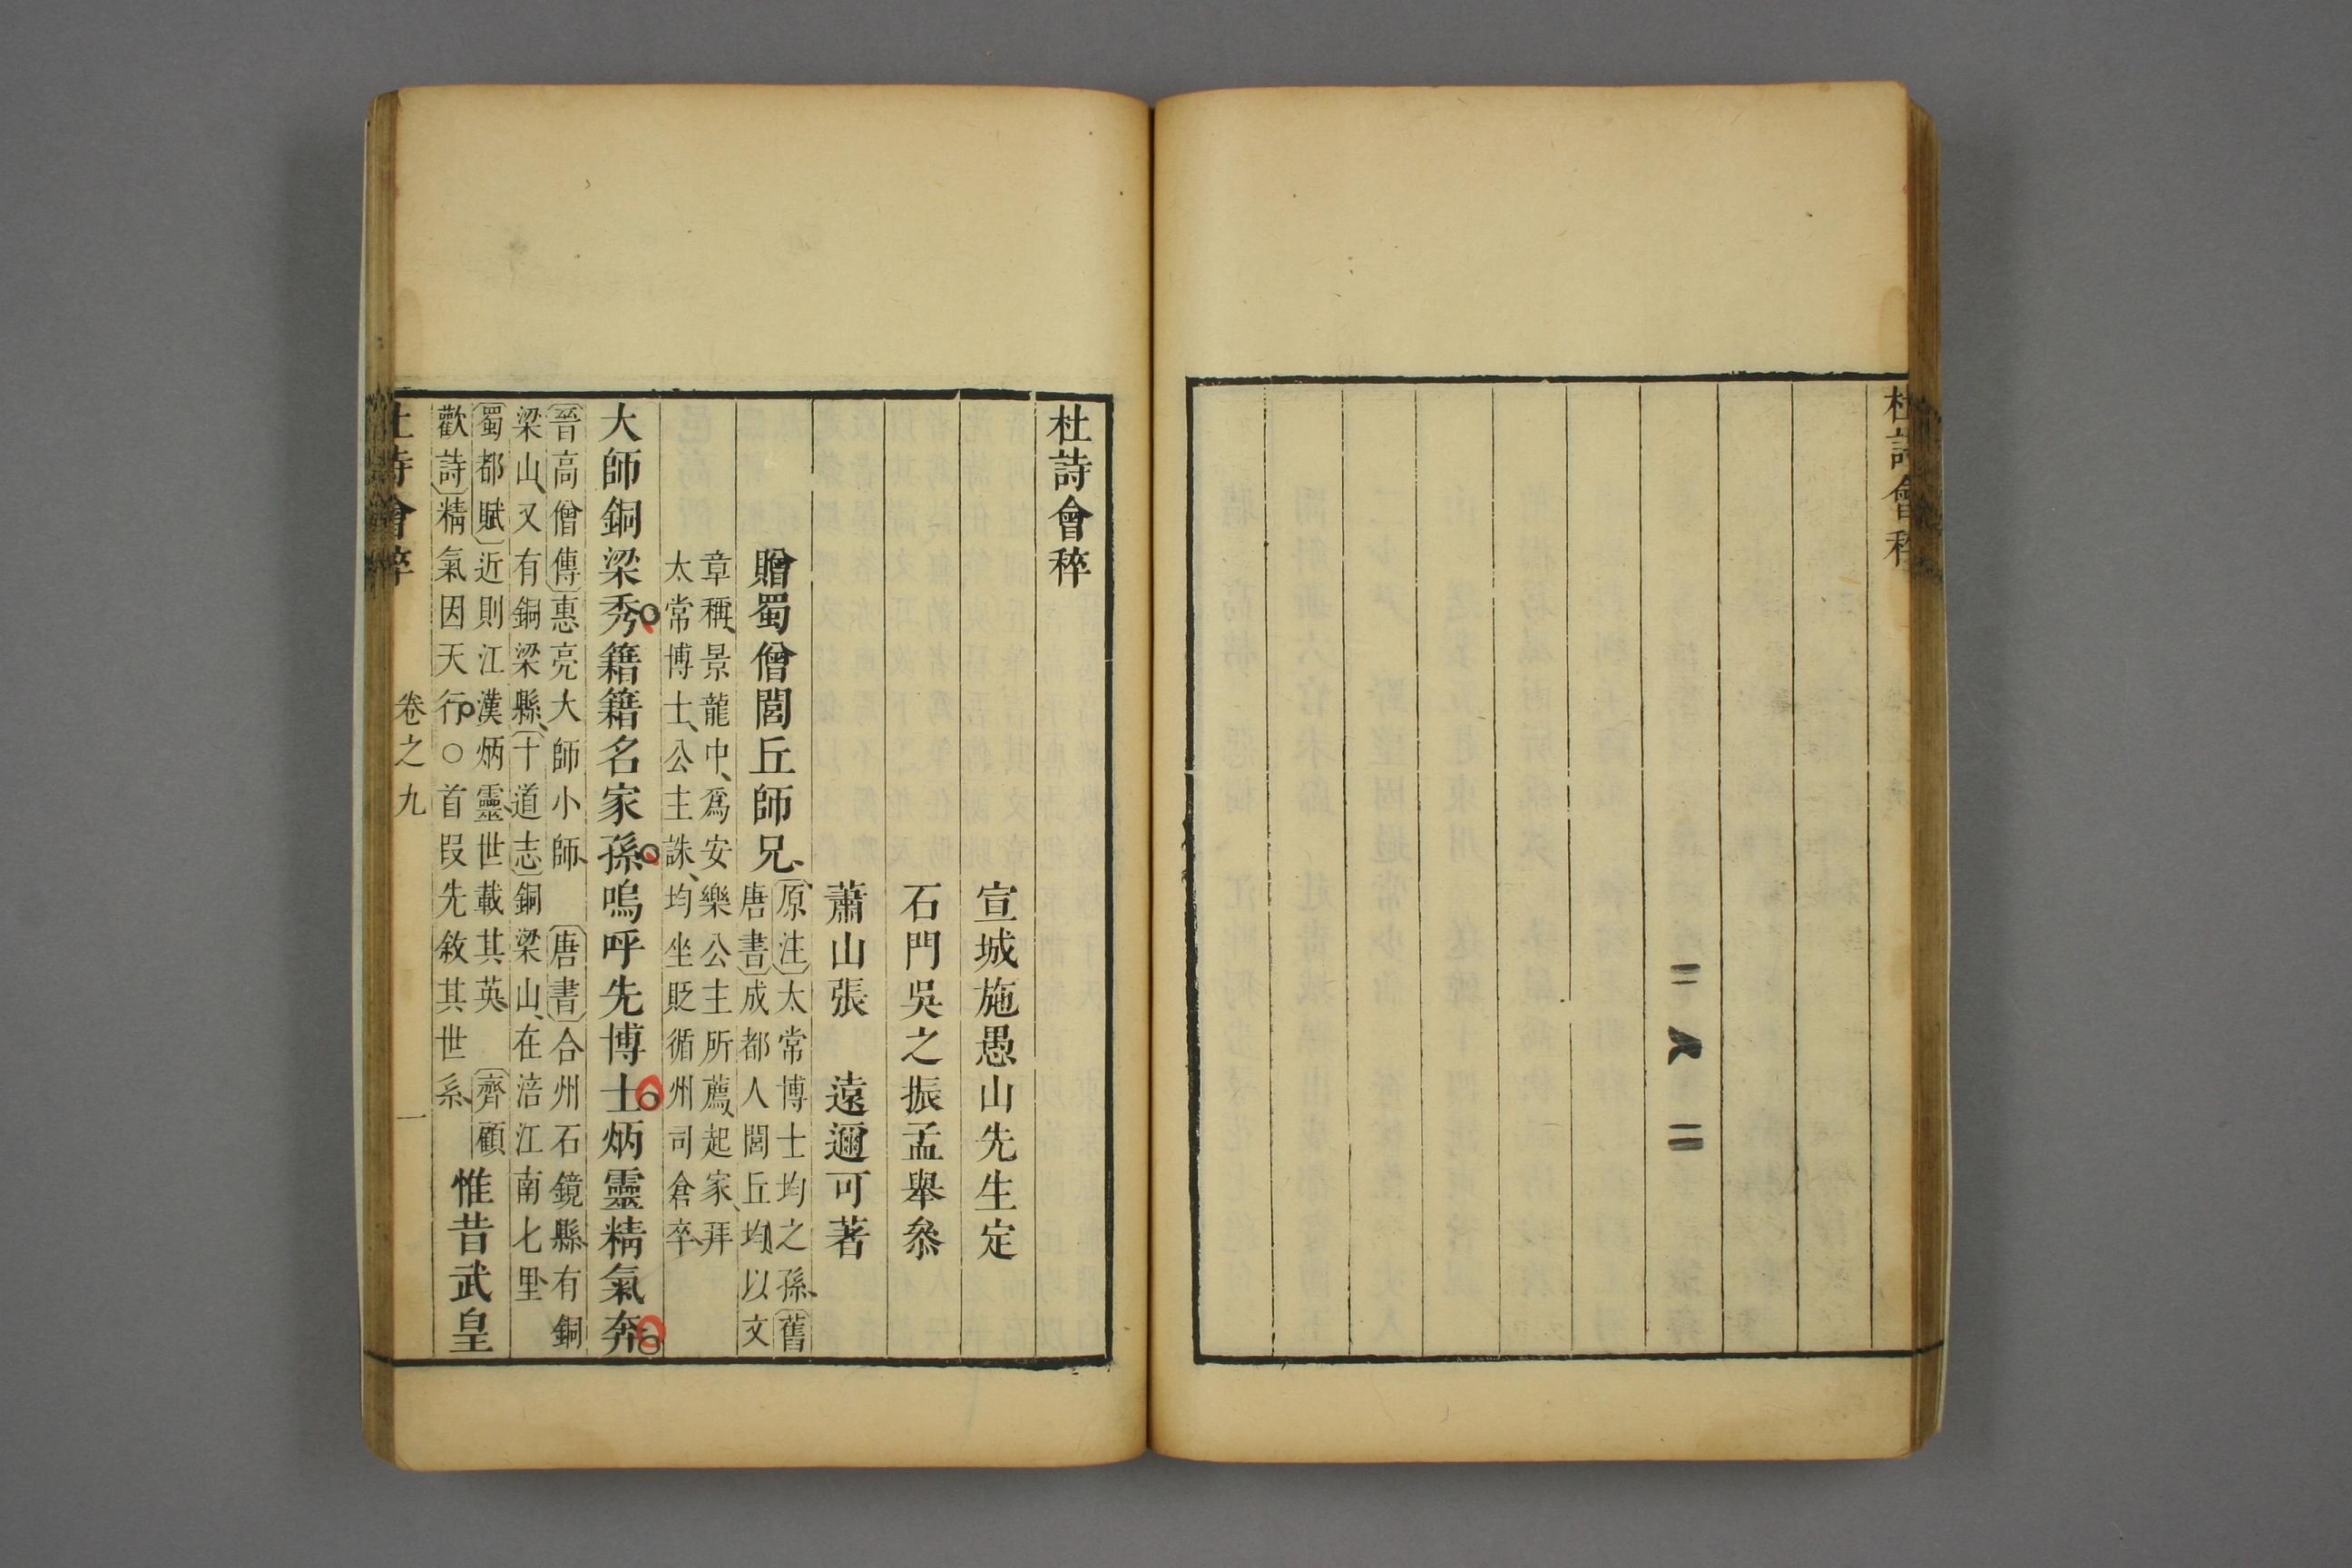 杜詩會稡
杜詩會稡
宣城施愚山先生定
石門吳之振孟舉叅
蕭山張　遠邇可著
贈蜀僧閭丘師兄、
〔原注〕太常博士均之孫、〔舊
唐書〕成都人閭丘均以文
章稱、景龍中、爲安樂公主所薦、起家、拜
太常博士、公主誅、均坐貶循州司倉卒、
大師銅梁秀籍籍名家孫嗚呼先博士炳靈精氣奔
〔晉高僧傳〕惠亮大師小師、〔唐書〕合州石鏡縣、有銅
梁山、又有銅梁縣、〔十道志〕銅梁山、在涪江南七里
〔蜀都賦〕近則江漢炳靈、世載其英、〔齊顧
歡詩〕精氣因天行○首叚先敘其世系、
惟昔武皇
杜詩會稡　卷之九　一